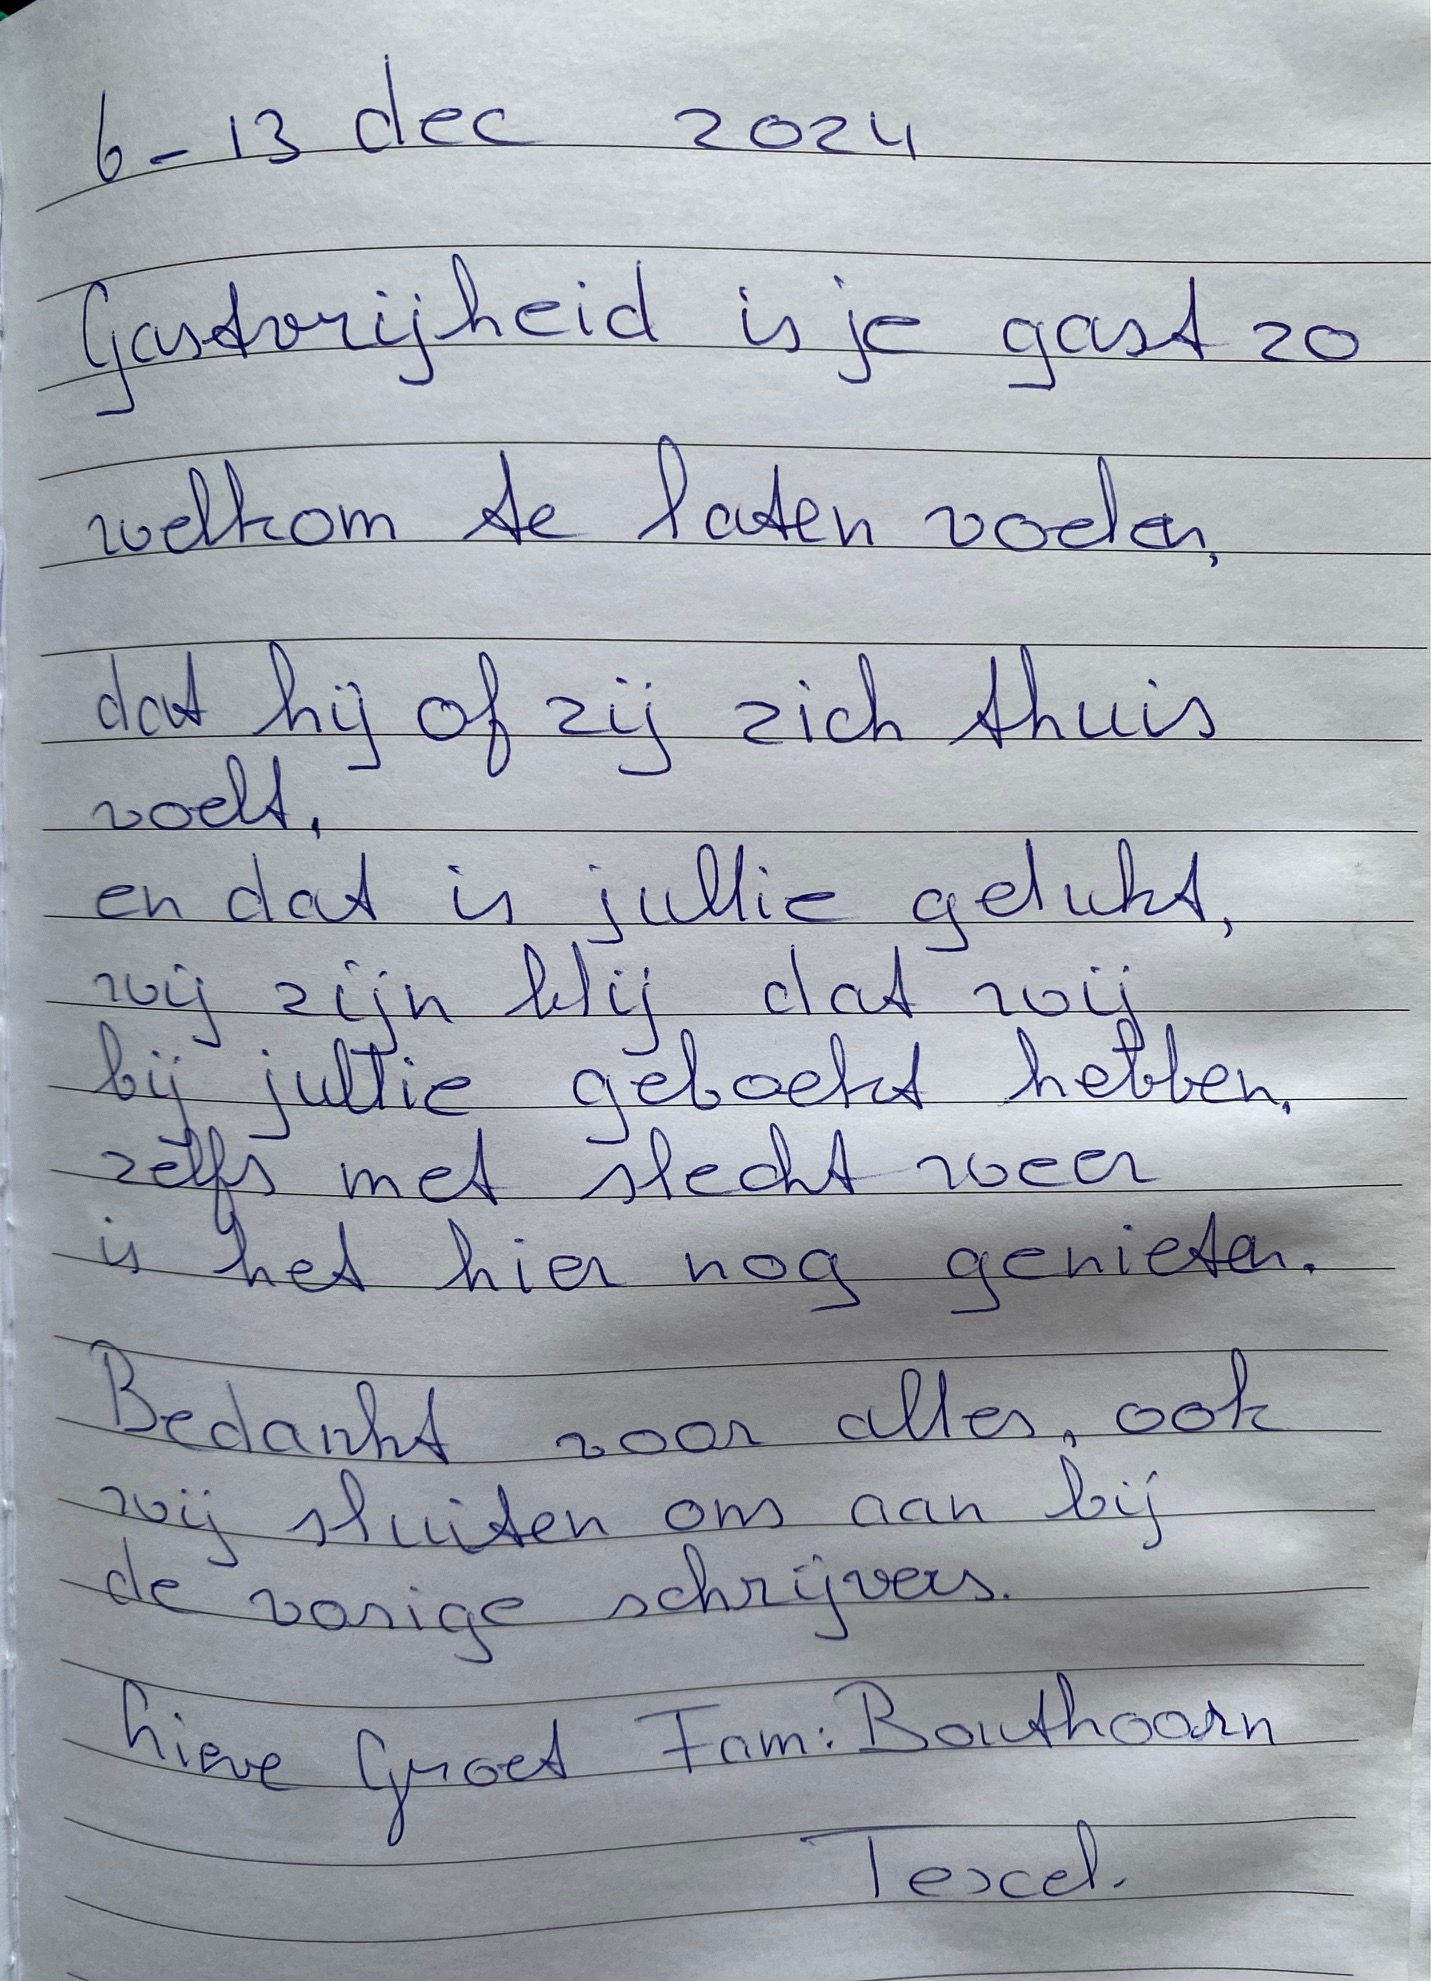 6 - 13 dec 2024
Gastvrijheid is je gast zo
welkom te laten voelen,
dat hij of zij zich thuis
voelt,
en dat is jullie gelukt,
wij zijn blij dat wij
bij jullie geboekt hebben,
zelfs met slecht weer
is het hier nog genieten.
Bedankt voor alles, ook
wij sluiten ons aan bij
de vorige schrijvers.
Lieve Groet Fam: Bouthoorn
Texel.